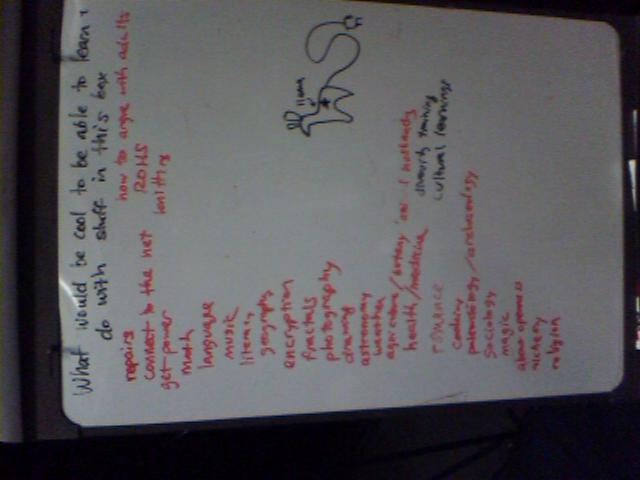 What would be cool to be able to learn
do with stuff in this box
repairs
connect to the net
get power
math
language
music
literacy
geography
encryption
fractals
photography
drawing
astronomy
weather
agriculture / botany
health/medicine
romance
cooking
paleontology/archaeology
sociology
magic
alchemy
religion
how to argue with adults
ROHS
knitting
diversity training
cultural learnings
llama